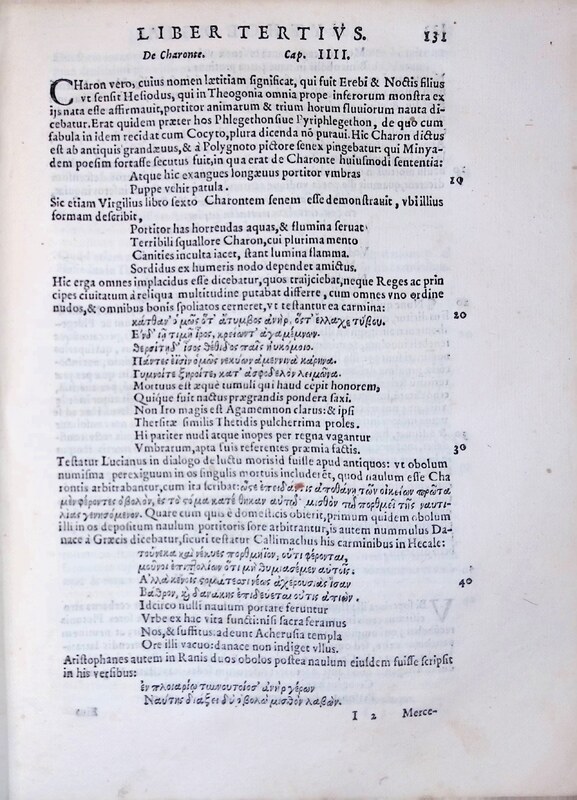 LIBER TERTIVS. 131
De Charonte. Cap. IIII.
CHaron vero, cuius nomen lætitiam significat, qui fuit Erebi & Noctis filius
vt sensit Hesiodus, qui in Theogonia omnia prope inferorum monstra ex
ijs nata esse affirmauit, portitor animarum & trium horum fluuiorum nauta di
cebatur. Erat quidem præter hos Phlegethon siue Pyriphlegethon, de quo cum
fabula in idem recidat cum Cocyto, plura dicenda nō putaui. Hic Charon dictus
est ab antiquis grandæuus, & à Polygnoto pictore senex pingebatur: qui Minya-
dem poesim fortasse secutus fuit, in qua erat de Charonte huiusmodi sententia:
Atque hic exangues longæuus portitor vmbras
Puppe vehit patula. 10
Sic etiam Virgilius libro sexto Charontem senem esse demonstrauit, vbi illius
formam describit,
Portitor has horrendas aquas, & flumina seruat
Terribili squallore Charon, cui plurima mento
Canities inculta iacet, stant lumina flamma.
Sordidus ex humeris nodo dependet amictus.
Hic erga omnes implacidus esse dicebatur, quos traijciebat, neque Reges ac prin
cipes ciuitatum à reliqua multitudine putabat differre, cum omnes vno ordine
nudos, & omnibus bonis spoliatos cerneret, vt testantur ea carmina:
κάτθαν' ὁμῶς ὅτ' ἄτυμβος ἀνὴρ, ὅστ' ἔλλαχε τύβου. 20
Ἐνδ' ἰῇ τιμῇ ἶρος, κρείωντ' ἀγαμέμνων.
Θερσίτηδ' ἶσος θέτιδος παῖς ἠυκόμοιο.
Πάντες εἰσὶν ὁμῶς νεκύων ἀμενηνὰ κάρηνα.
Γυμνοίτε ξηροίτε, κατ' ἀσφοδελὸν λειμῶνα.
Mortuus est æquè tumuli qui haud cepit honorem,
Quique fuit nactus prægrandis pondera saxi.
Non Iro magis est Agamemnon clarus: & ipsi
Thersitæ similis Thetidis pulcherrima proles.
Hi pariter nudi atque inopes per regna vagantur
Vmbrarum, apta suis referentes præmia factis. 30
Testatur Lucianus in dialogo de luctu moris id fuisse apud antiquos: vt obolum
numisma perexiguum in os singulis mortuis includeret, quod naulum esse Cha
rontis arbitrabantur, cum ita scribat: ὥστε ἐπειδάν τις ἀποθάνῃ τῶν οἰκείων πρῶτα
μὲν φέροντες ὀβολὸν, ἐς τὸ σόμα κατέθηκαν αὐτῷ μισθὸν τῷ πορθμεῖ τῆς ναυτι-
λίας γενησόμενον. Quare cum quis è domesticis obierit, primum quidem obolum
illi in os depositum naulum portitoris fore arbitrantur, is autem nummulus Da-
nace à Græcis dicebatur, sicuti testatur Callimachus his carminibus in Hecale:
τούνεκα καὶ νέκυες πορθμήϊον, οὔτι φέρονται,
μούνοι ἐπιπολίων ὅτι μὴ θυμιασέμεν αὐτοῖς.
Ἀλλὰ κενοῖς σοματεσσι νέως ἀχερουσιὰς ἶσαν 40
Βάθρον, χ' δανάκης ἐπιδεύεται οὔτις ἀπιών.
Idcirco nulli naulum portare feruntur
Vrbe ex hac vita functi: nisi sacra feramus
Nos, & suffitus: adeunt Acherusia templa
Ore illi vacuo: danace non indiget vllus.
Aristophanes autem in Ranis duos obolos postea naulum eiusdem fuisse scripsit
in his versibus:
ἐν πλοιαρίῳ τυννουτοΐσ' ἀνὴρ γέρων
Ναύτης διάξει δύ' ὀβολὼ μισθὸν λαβών.
I 2 Merce-